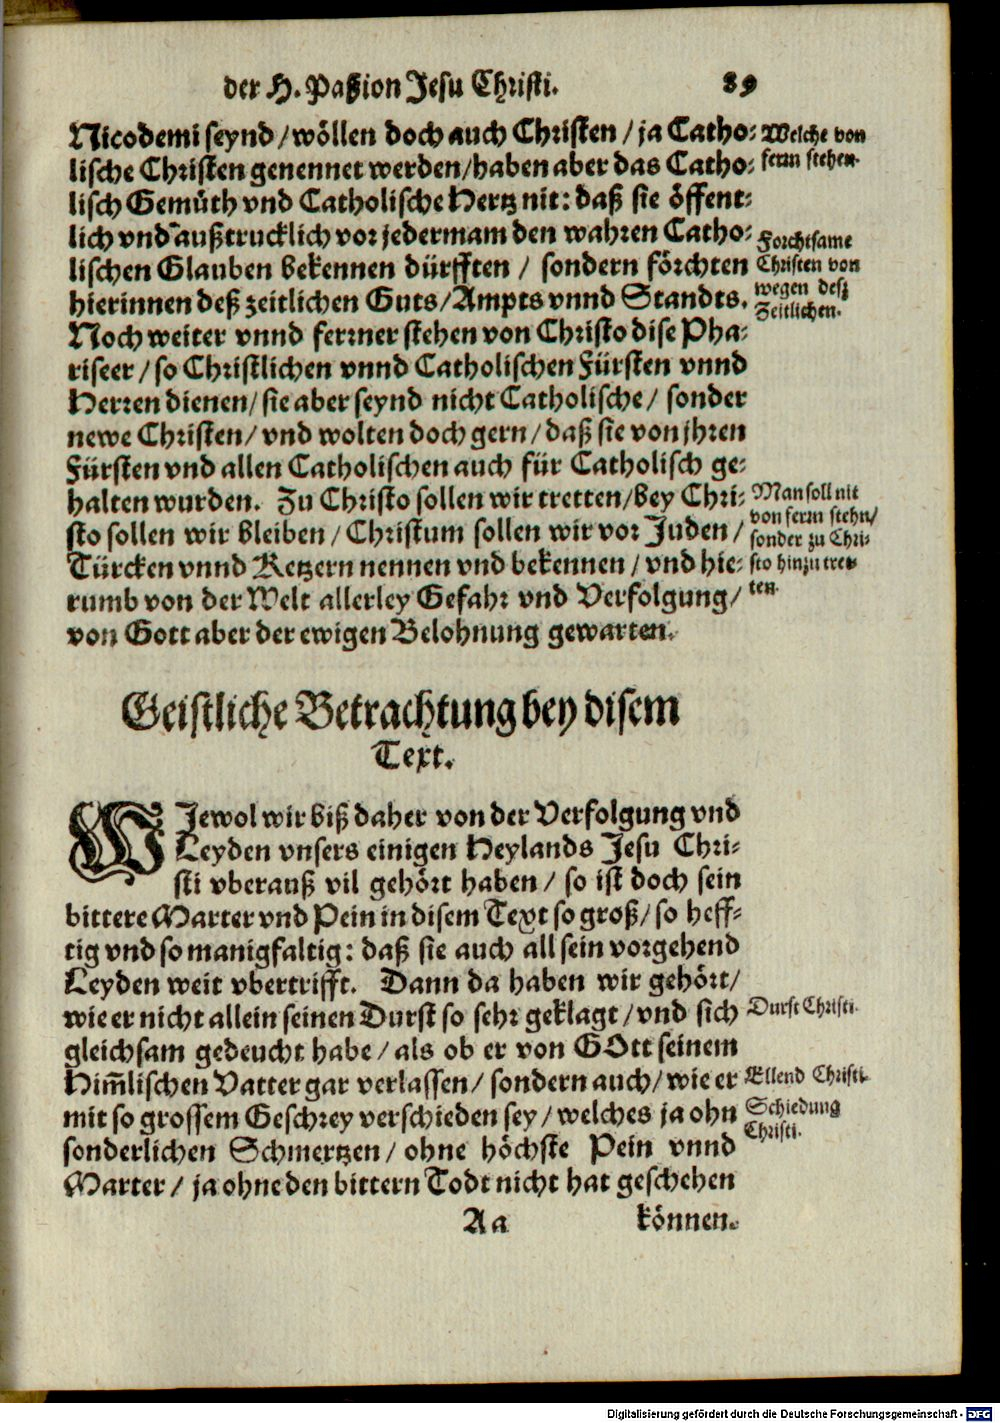 der H. Paßion Jesu Christi. 89
Nicodemi seynd / wöllen doch auch Christen / ja Catho-
lische Christen genennet werden / haben aber das Catho-
lisch Gemüth vnd Catholische Hertz nit: daß sie öffent-
lich vnd außtrucklich vor jedermam den wahren Catho-
lischen Glauben bekennen dürfften / sondern förchten
hierinnen deß zeitlichen Guts / Ampts vnnd Standts.
Noch weiter vnnd ferrner stehen von Christo dise Pha-
riseer / so Christlichen vnnd Catholischen Fürsten vnnd
Herren dienen / sie aber seynd nicht Catholische / sonder
newe Christen / vnd wolten doch gern / daß sie von jhren
Fürsten vnd allen Catholischen auch für Catholisch ge-
halten wurden. Zu Christo sollen wir tretten / bey Chri-
sto sollen wir bleiben / Christum sollen wir vor Juden /
Türcken vnnd Ketzern nennen vnd bekennen / vnd hie-
rumb von der Welt allerley Gefahr vnd Verfolgung /
von Gott aber der ewigen Belohnung gewarten.
Welche von
ferrn stehen.
Forchtsame
Christen von
wegen deß
Zeitlichen.
Man soll nit
von ferrn stehn /
sonder zu Chri-
sto hinzu tret-
ten.
Geistliche Betrachtung bey disem
Text.
WJewol wir biß daher von der Verfolgung vnd
Leyden vnsers einigen Heylands Jesu Chri-
sti vberauß vil gehört haben / so ist doch sein
bittere Marter vnd Pein in disem Text so groß / so heff-
tig vnd so manigfaltig: daß sie auch all sein vorgehend
Leyden weit vbertrifft. Dann da haben wir gehört /
wie er nicht allein seinen Durst so sehr geklagt / vnd sich
gleichsam gedeucht habe / als ob er von GOtt seinem
Him̃lischen Vatter gar verlassen / sondern auch / wie er
mit so grossem Geschrey verschieden sey / welches ja ohn
sonderlichen Schmertzen / ohne höchste Pein vnnd
Marter / ja ohne den bittern Todt nicht hat geschehen
Durst Christi.
Ellend Christi.
Schiedung
Christi.
Aa können.
Digitalisierung gefördert durch die Deutsche Forschungsgemeinschaft - DFG